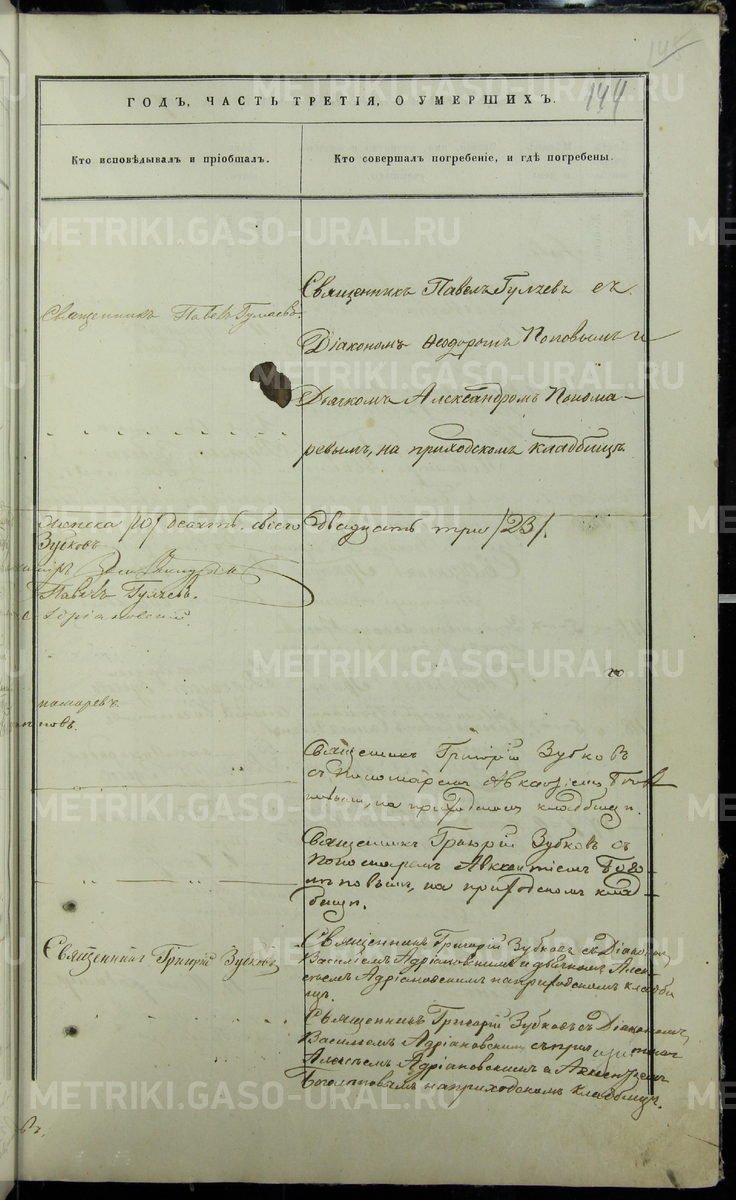 145
144
ГОДЪ, ЧАСТЬ ТРЕТІЯ, О УМЕРШИХЪ.
Кто исповѣдывалъ и пріобщалъ.
Кто совершалъ погребеніе, и гдѣ погребены.
Священникъ Павелъ Гуляевъ.
Священникъ Павелъ Гуляевъ съ
Діакономъ Ѳеодоромъ Поповымъ и
Дьячкомъ Александромъ Понома-
ревымъ, на приходскомъ кладбищѣ
/10/ десять. всего
двадцать три /23/.
Зубковъ
Павелъ Гуляевъ.
Адріановскій
номаревъ
повъ.
Священникъ Григорій Зубковъ
съ Пономаремъ
на приходскомъ кладбищѣ.
Священникъ Григорій Зубковъ съ
Пономаремъ Авксентіемъ Бого-
лѣповымъ, на приходскомъ клад-
бищѣ.
Священникъ Григорій Зубковъ
Священникъ Григорій Зубковъ съ Діакономъ
Василіемъ Адріановскимъ и дьячкомъ Алек-
сѣемъ Адріановскимъ на приходскомъ кладби
щѣ.
Священникъ Григорій Зубковъ съ Діакономъ
Василіемъ Адріановскимъ съ
Алексѣемъ Адріановскимъ и
Боголѣповымъ на приходскомъ кладбищѣ.
METRIKI.GASO-URAL.RU